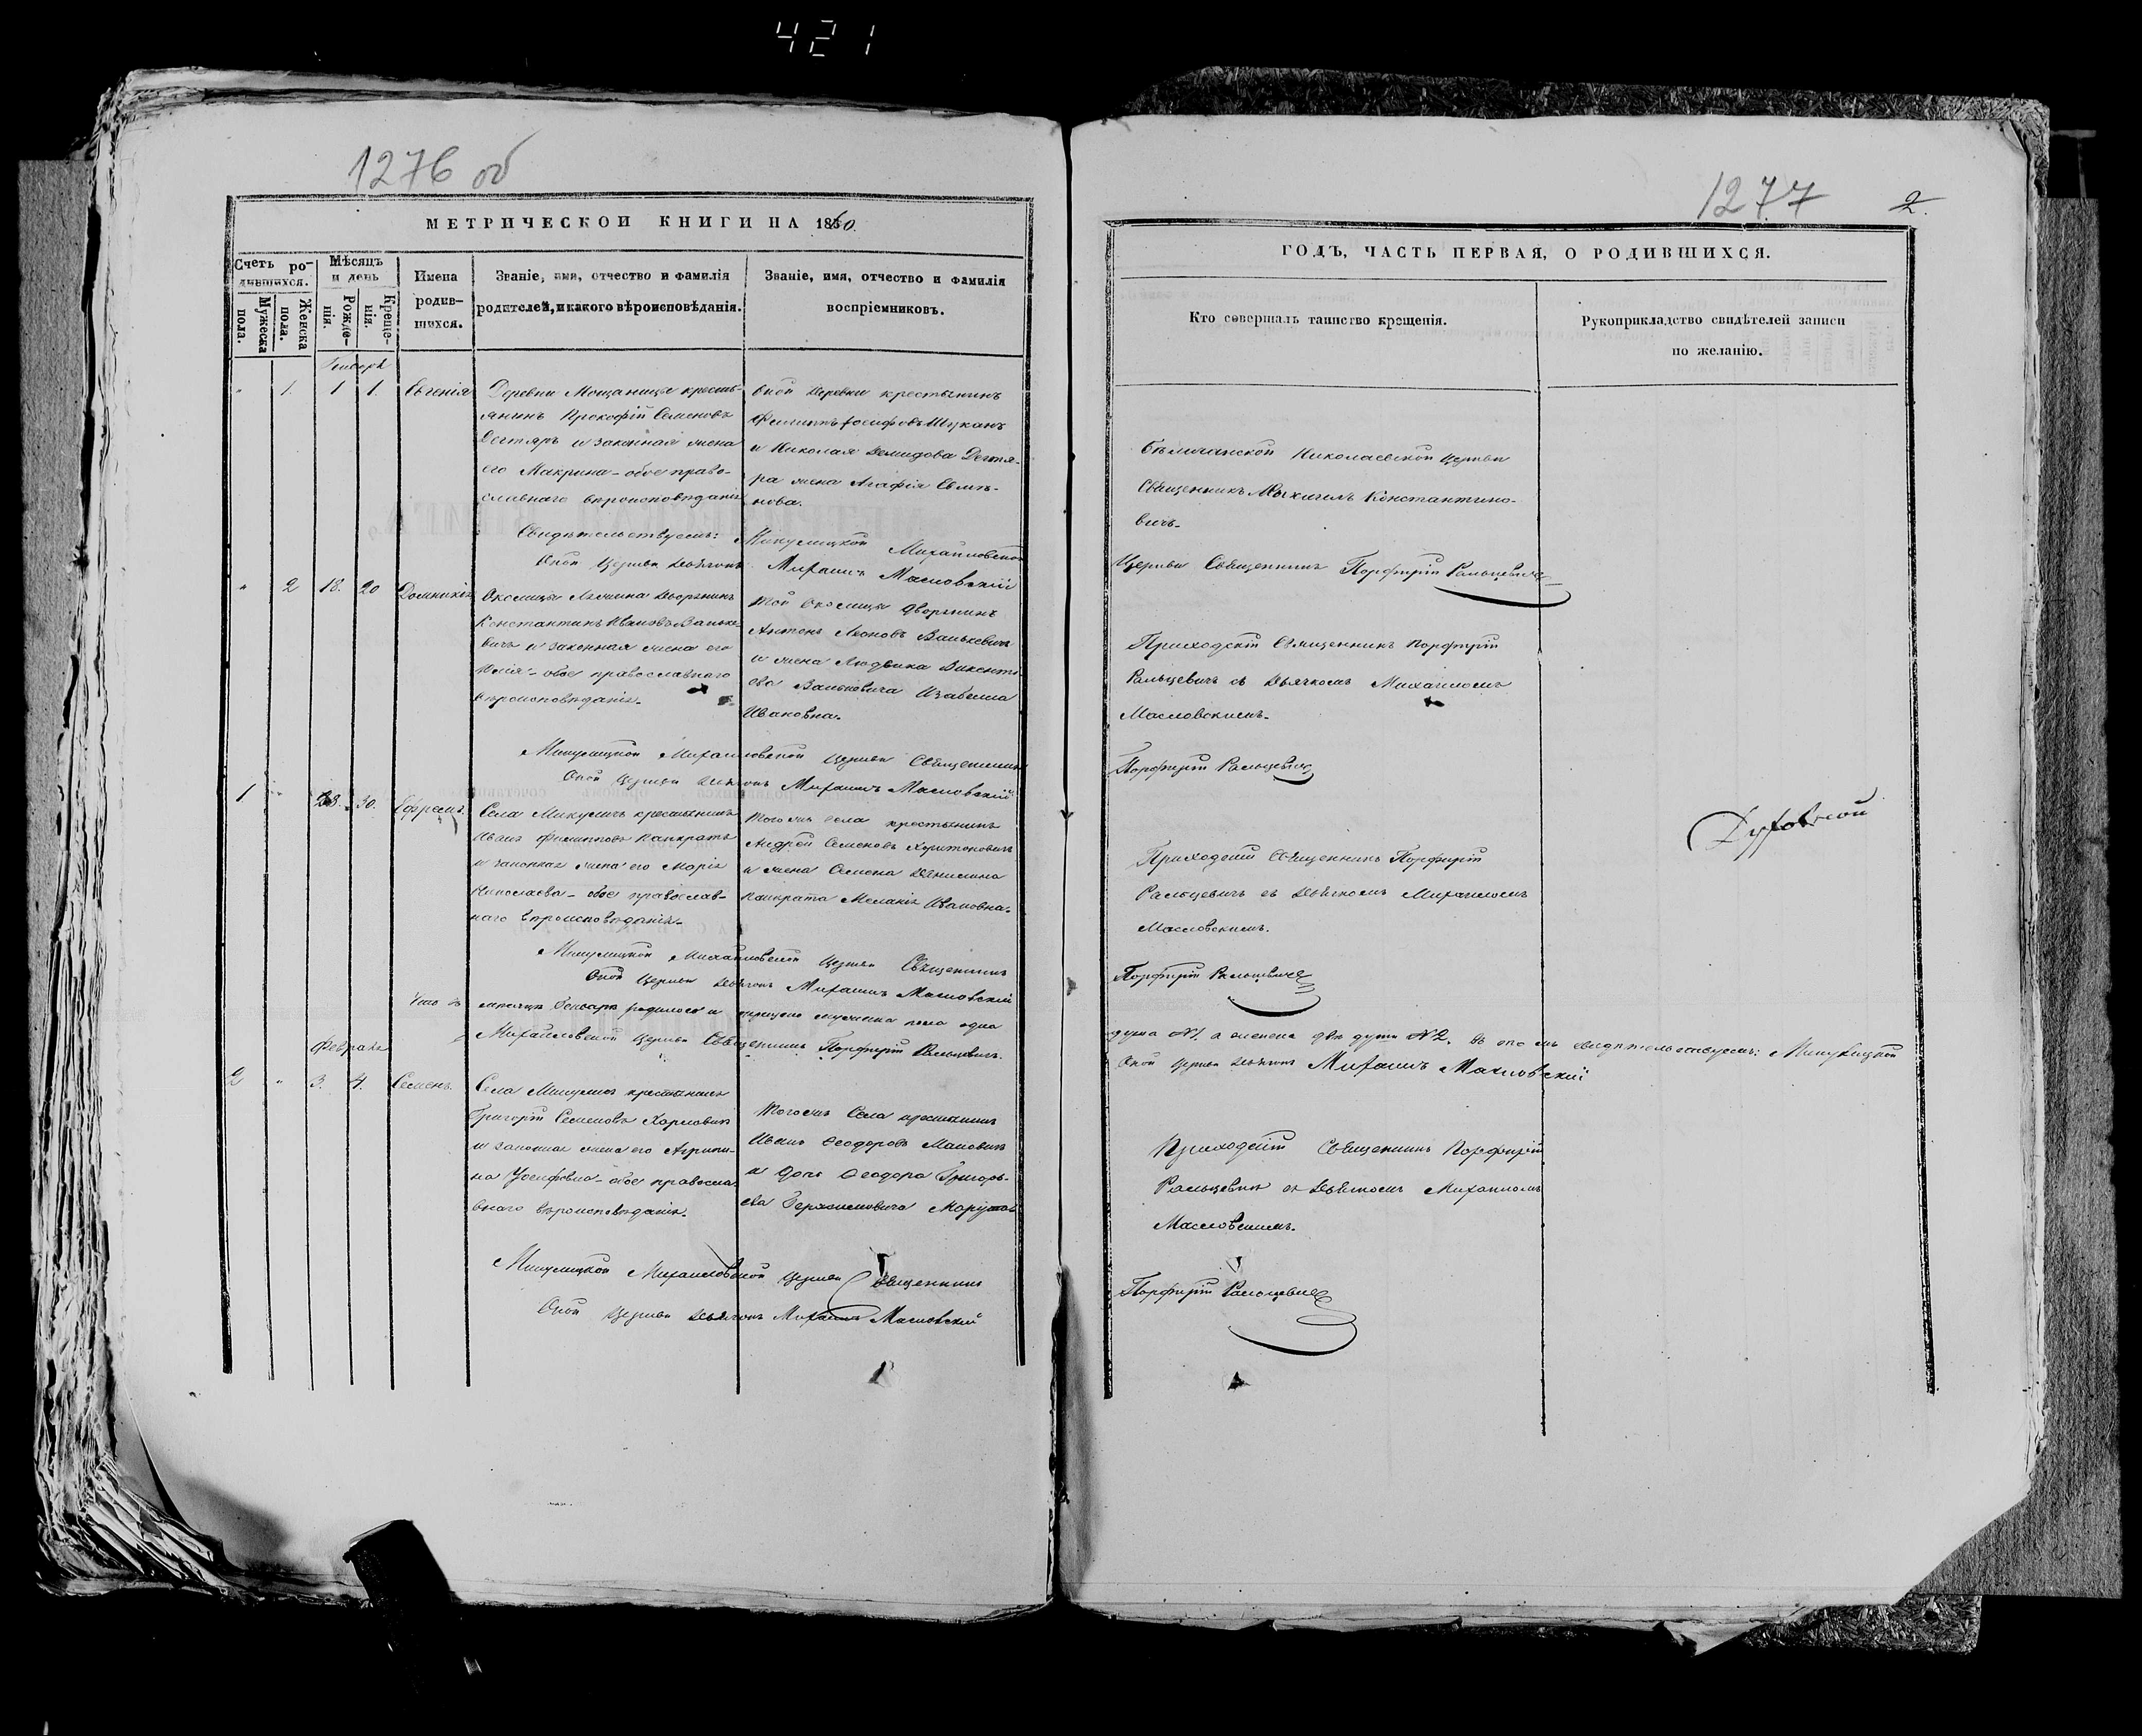 421
1276 об
МЕТРИЧЕСКОЙ КНИГИ НА 1860.
Счетъ ро-
дившихся.
Мужеска
пола.
Женска
пола.
Мѣсяцъ
и день
Рожде-
нія.
Креще-
нія.
Имена
родив-
шихся.
Званіе, имя, отчество и фамилія
родителей, и какого вѣроисповѣданія.
Званіе, имя, отчество и фамилія
воспріемниковъ.
Генварь
" 1. 1 1. Евгенія
Деревни Мощаницы кресть-
янинъ Прокофій Семеновъ
Дегтяръ и законная жена
его Макрина - обое право-
славнаго вѣроисповѣданія
Оной Деревни крестьянинъ
Филиппъ Іосифовъ Шукань
и Николая Демидова Дегтя-
ра жена Агафія
нова.
Свидѣтельствуемъ: Микулицкой Михайловской
Оной Церкви Дьячокъ Михаилъ Масловскій
" 2 18. 20 Домникія
Околицы Дворянинъ
Константинъ Ивановъ Ваньке-
вичъ и законная жена его
Юлія - обое православнаго
вѣроисповѣданія.
Той Околицы Дворянинъ
Антонъ Леоновъ Ванькевичъ
и жена Людвика Викенті-
ева Ваньковича Изабелла
Ивановна.
Микулицкой Михайловской Церкви Священникъ
Оной Церкви Дьячокъ Михаилъ Масловскій
1 " 28. 30. Ефремъ.
Села Микуличъ крестьянинъ
Иванъ Филипповъ Панкратъ
и законная жена его Марія
Николаева - обое православ-
наго вѣроисповѣданія.
Того жъ Села крестьянинъ
Андрей Семеновъ Харитоновичъ
и жена Семена Данилина
Панкрата Меланія Ивановна.
Микулицкой Михайловской Церкви Священникъ
Оной Церкви Дьячокъ Михаилъ Масловскій
Что въ мѣсяцѣ Генварѣ родилось и крещено мужеска пола одна
Михайловской Церкви Священникъ Порфирій Ральцевичъ.
Февраль
2 " 3. 4. Семенъ.
Села Микуличъ крестьянинъ
Григорій Семеновъ Карповичъ
и законная жена его Агрипи-
на Іосифовна - обое правосла-
внаго вѣроисповѣданія.
Того жъ Села крестьянинъ
Иванъ Ѳеодоровъ
и дочь Ѳеодора Григорь-
ева Герасимовича
Микулицкой Михайловской Церкви Священникъ
Оной Церкви Дьячокъ Михаилъ Масловскій
1277
2.
ГОДЪ, ЧАСТЬ ПЕРВАЯ, О РОДИВШИХСЯ.
Кто совершалъ таинство крещенія.
Рукоприкладство свидѣтелей записи
по желанію.
Николаевской Церкви
Священникъ Михаилъ Константино-
вичъ.
Церкви Священникъ Порфирій Ральцевичъ
Приходскій Священникъ Порфирій
Ральцевичъ съ Дьячкомъ Михаиломъ
Масловскимъ.
Порфирій Ральцевичъ
Духовной
Приходскій Священникъ Порфирій
Ральцевичъ съ Дьячкомъ Михаиломъ
Масловскимъ.
Порфирій Ральцевичъ
душа №1. а женска двѣ души №2. въ томъ свидѣтельствуемъ: Микулицкой
Оной Церкви Дьячокъ Михаилъ Масловскій
Приходскій Священникъ Порфирій
Ральцевичъ съ Дьячкомъ Михаиломъ
Масловскимъ.
Порфирій Ральцевичъ